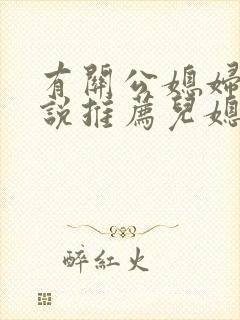 有關公媳婦
說推薦兒媳
醉紅火